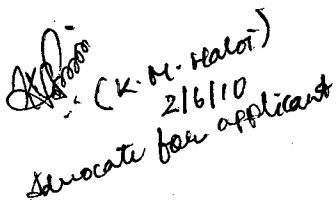 (K. M. Haloi)
2/6/10
Advocate for applicant